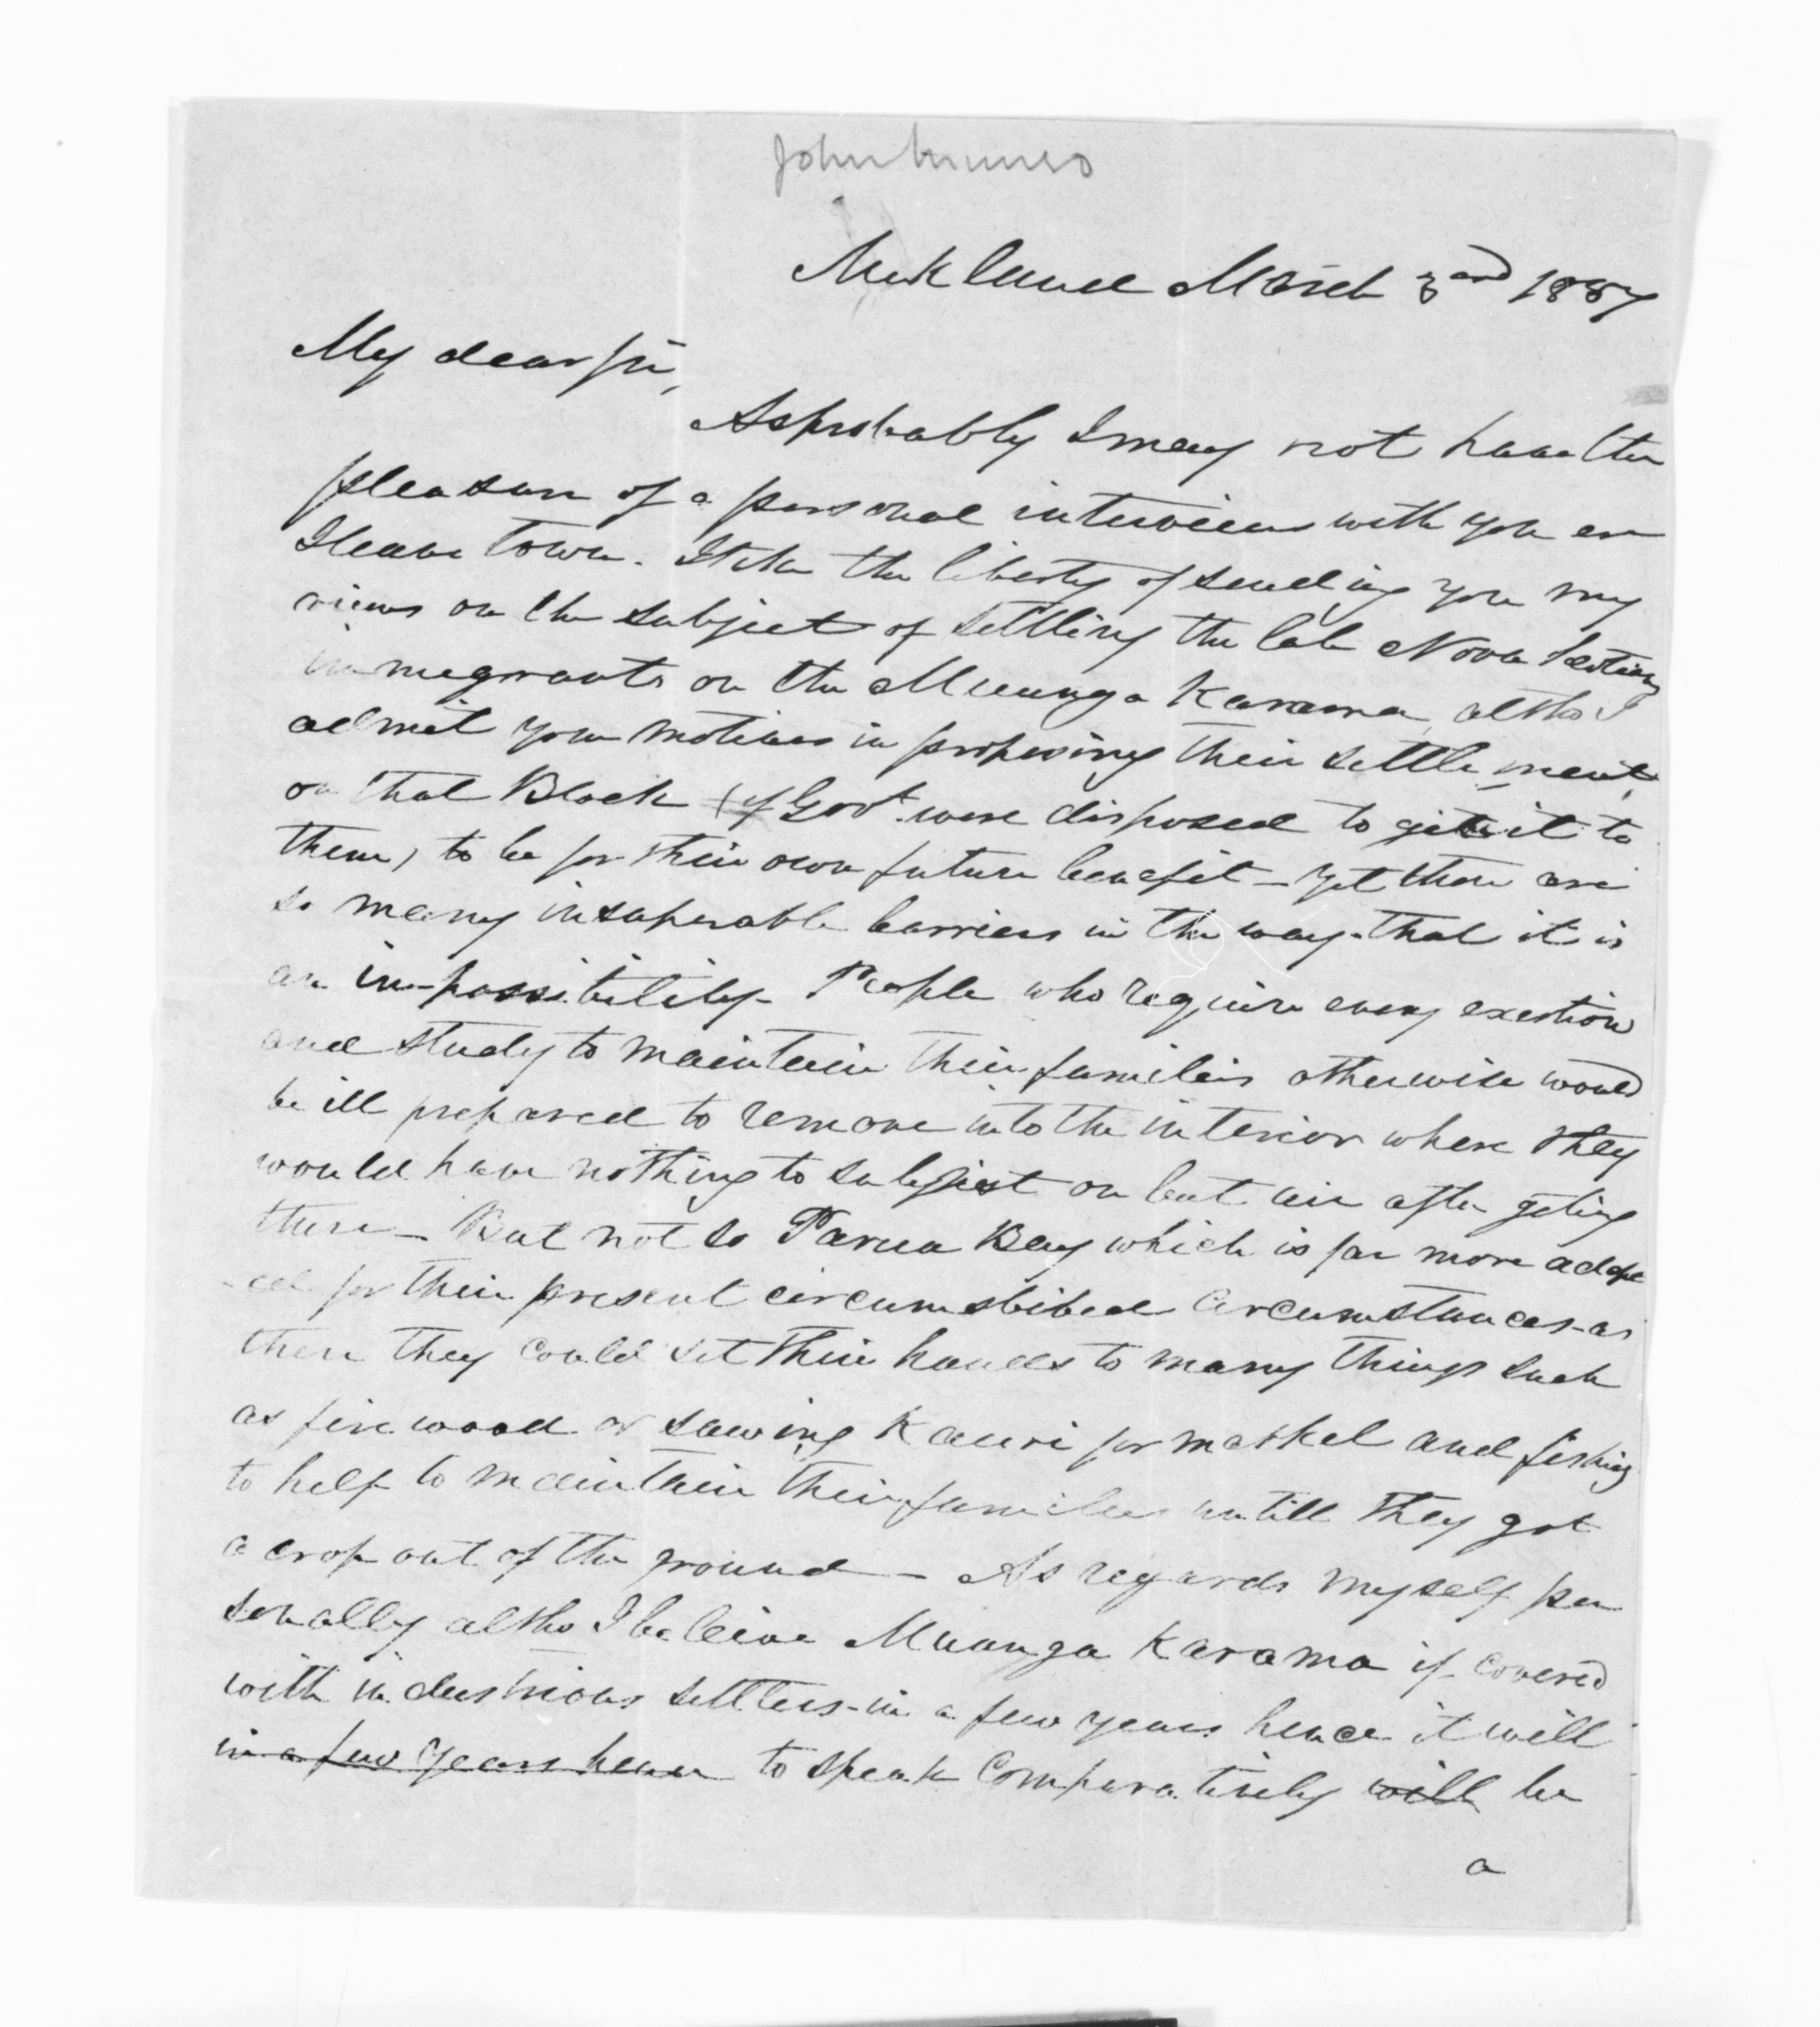 John Munro
Auckland March 3rd 1857
My dear Sir,
As probably I may not have the
pleasure of a personal interview with you ere
I leave Town. I take the liberty of sending you my
views on the subject of settling the late Nova Scotian
immegrants on the Muunga Karama, altho I
admit your motives in proposing their settlement
on that Block (if Govt. were disposed to give it to
them) to be for their own future benefit - yet there are
so many insuperable barriers in the way - that it is
an impossibility - People who require every exertion
and study to maintain their families otherwise would
be ill prepared to remove into the interior where they
would have nothing to subsist on but air after geting
there - But not so Parua Bay which is far more adapt
-ed for their present circumstibed circumstances - as
there they could set their hands to many things such
as fire wood or sawing Kauri for market and fishing
to help to maintain their families untill they got
a crop out of the ground - As regards myself per
sonally altho I beleive Muunga Karama if covered
with industrious settlers - in a few years hence it will
in a few years hence to speak comparatively will be
a